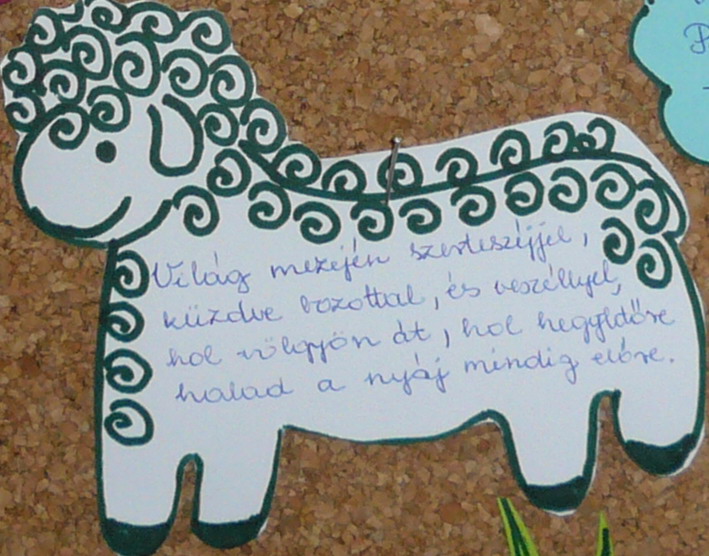 Világ mezején szerteszéjjel,
küzdve bozottal, és veszéllyel,
hol völgyön át, hol hegytetőre
halad a nyáj mindig előre.
P